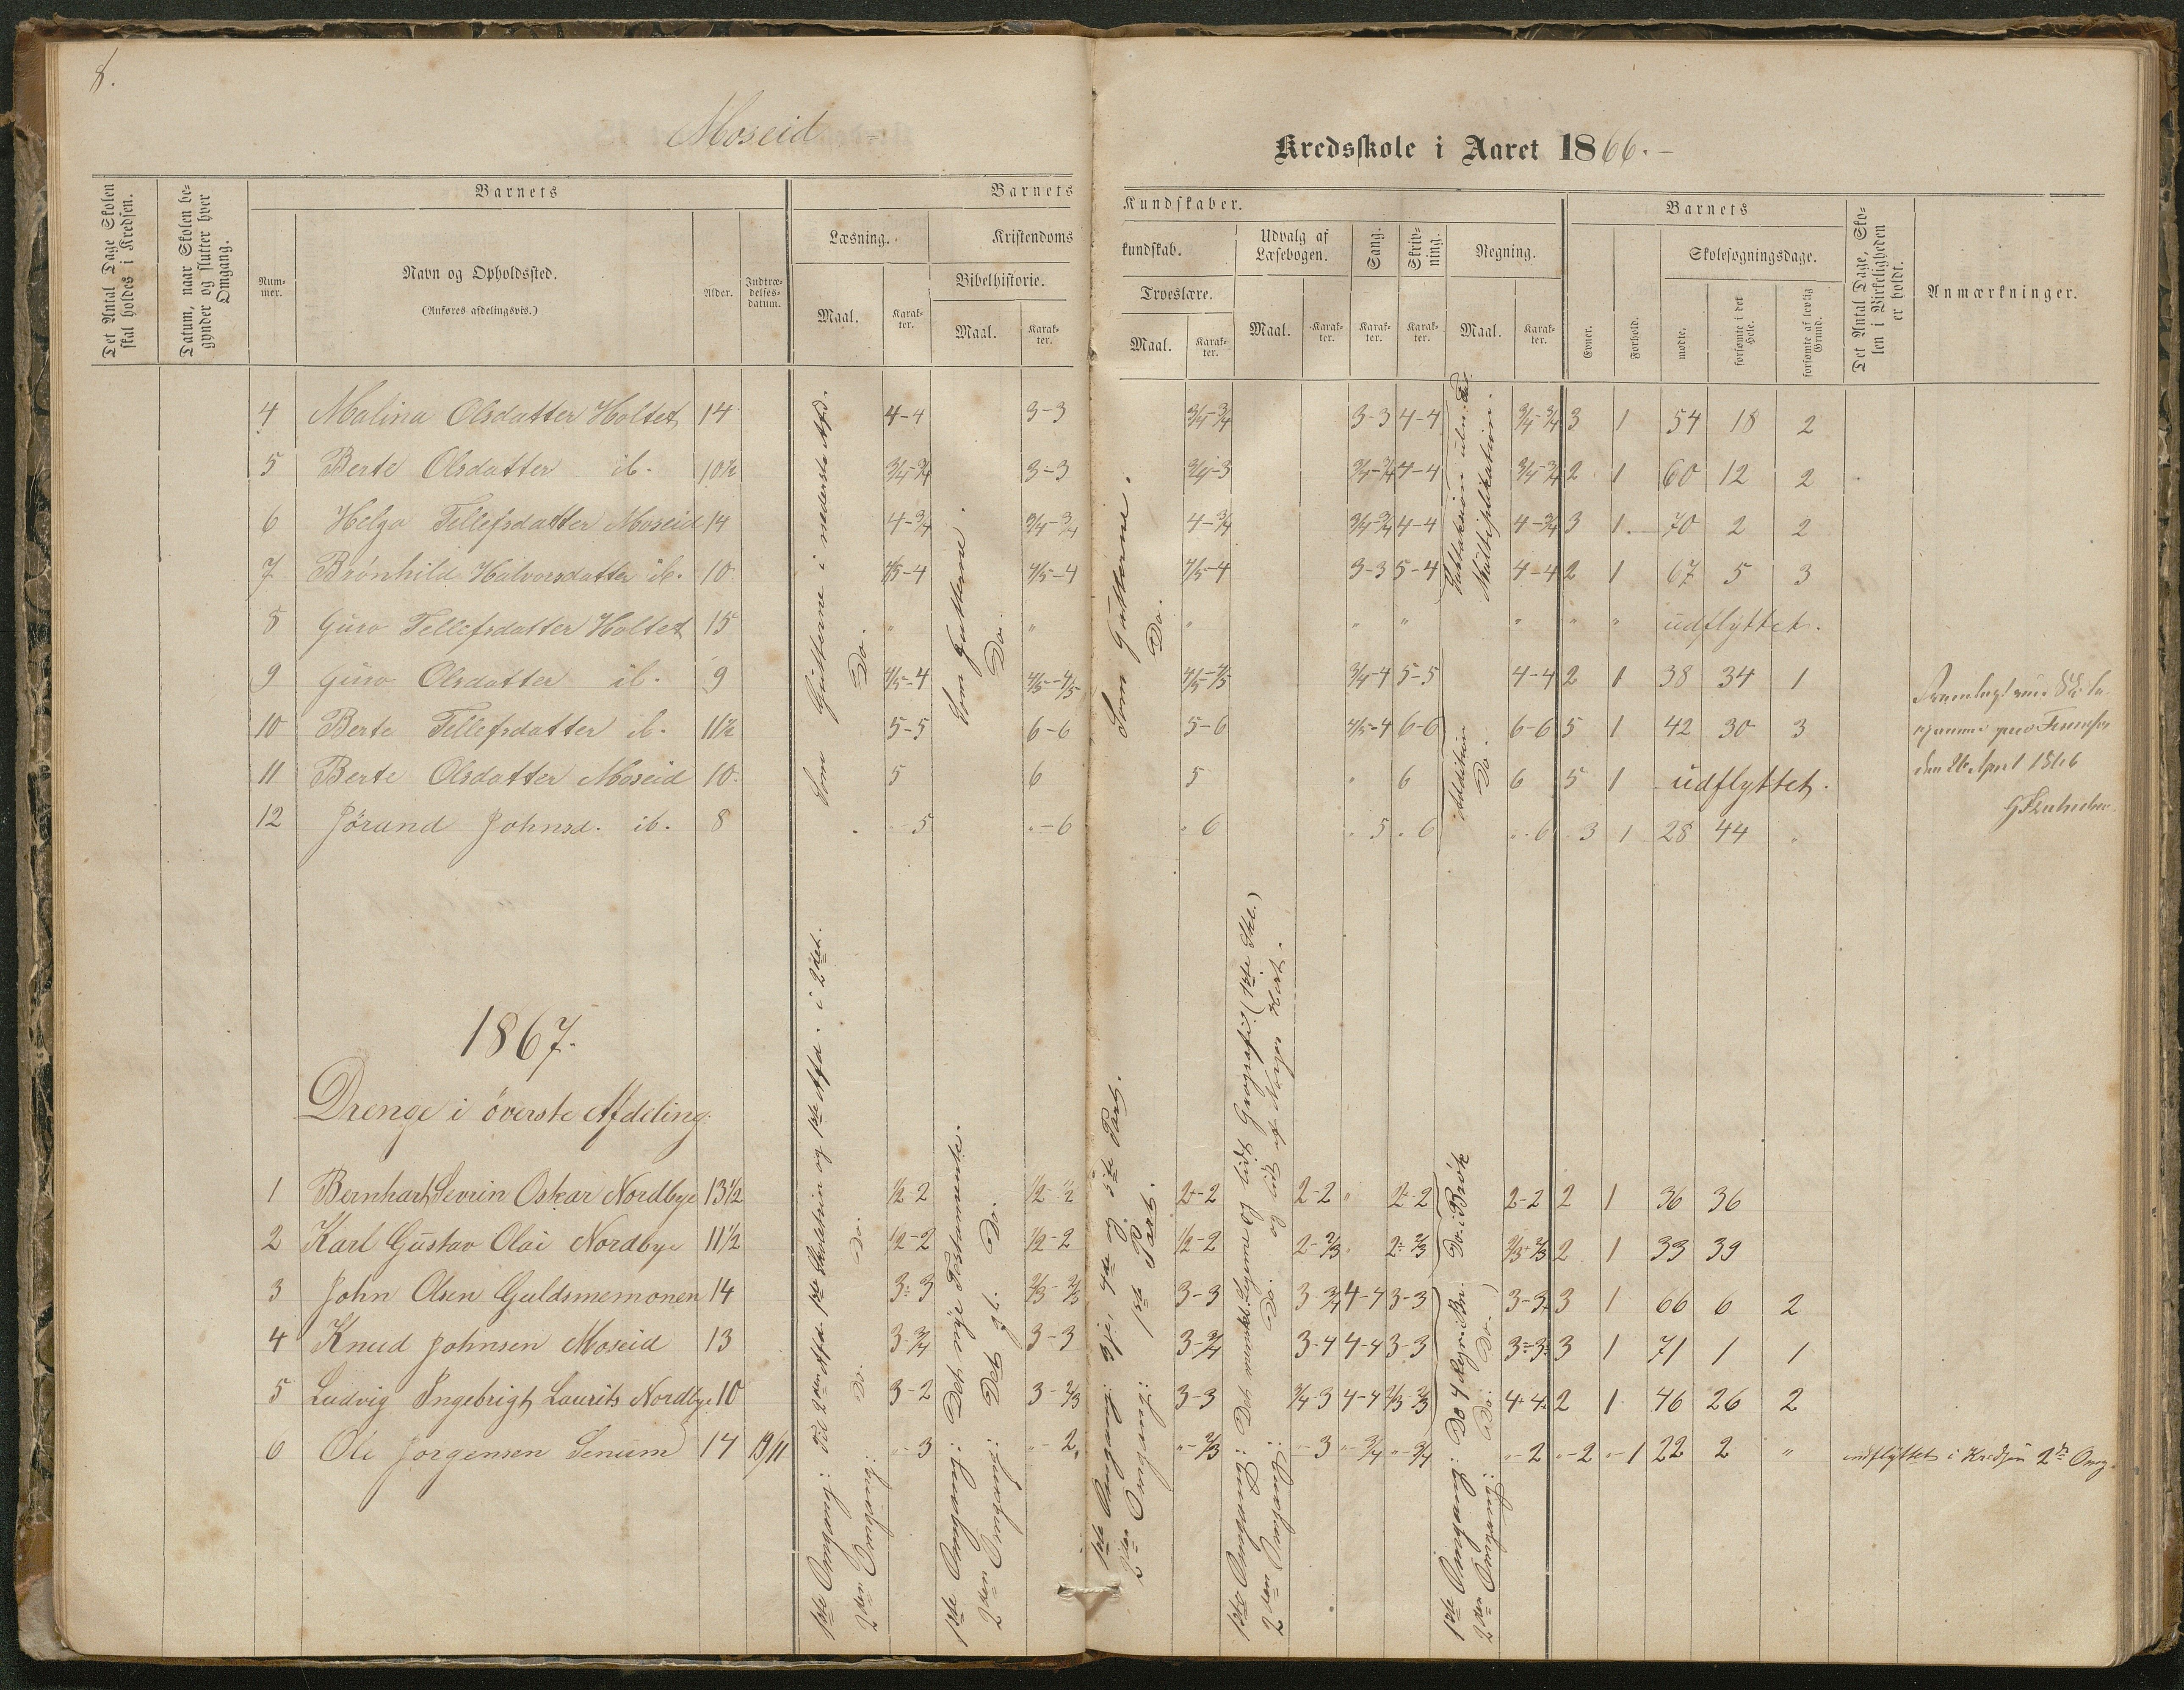 8.
Moseid
Kredsskole i Aaret 1866.
Det Antal Dage Skolen skal holdes i Kredsen.
Datum, naar Skolen begynder og slutter hver Omgang.
Barnets
Nummer.
Navn og Opholdssted.
(Anføres afdelingsvis.)
Alder.
Indtrædelsesdatum.
Barnets
Læsning.
Maal.
Karakter.
Kristendoms
Bibelhistorie.
Maal.
Karakter.
Kundskaber.
kundskab.
Troeslære.
Maal.
Karakter.
Udvalg af Læsebogen.
Maal.
Karakter.
Sang.
Karakter.
Skrivning.
Karakter.
Regning.
Maal.
Karakter.
Barnets
Evner.
Forhold.
Skolesøgningsdage.
mødte.
forsømte i det Hele.
forsømte af lovlig Grund.
Det Antal Dage, Skolen i Virkeligheden er holdt.
Anmærkninger.
4 Malina Olsdatter Holtet 14 4-4 3-3 3/4-3/4 3-3 4-4 3/4-3/4 3 1 54 18 2
5 Berte Olsdatter ib. 10½ 3/4-3/4 3-3 3/4-3 3/4-3/4 4-4 3/4-3/4 2 1 60 12 2
6 Helga Tellefsdatter Moseid 14 4-3/4 3/4-3/4 4-3/4 3/4-3/4 4-4 4-3/4 3 1 70 2 2
7 Brønhild Halvorsdatter ib. 10 4/5-4 4/5-4 4/5-4 3-3 5-4 4-4 2 1 67 5 3
8 Guro Tellefsdatter Holtet 15 " " " " " " " " udflyttet.
9 Guro Olsdatter ib. 9 4/5-4 4/5-4/5 4/5-4/5 3/4-4 5-5 4-4 2 1 38 34 1
10 Berte Tellefsdatter ib. 11½ 5-5 6-6 5-6 4/5-4 6-6 6-6 5 1 42 30 3
11 Berte Olsdatter Moseid 10 5 6 5 " 6 6 5 1 udflyttet.
12 Jørand Johnsd. ib. 8 "-5 "-6 "-6 "-5 "-6 "-6 3 1 28 44 "
Som Gutterne i nederste Afd.
Do.
Som Gutterne.
Do.
Som Gutterne.
Do.
Multiplikation.
Addition
Do.
den 26 April 1866
1867.
Drenge i överste Afdeling.
1 Bernhart Sevrin Oskar Nordbye 13½ ½-2 ½-½ 2-2 2-2 " 2-2 2-2 2 1 36 36
2 Karl Gustav Olai Nordbye 11½ ½-2 ½-2 ½-2 2-2/3 " 2-2/3 2/3-2/3 2 1 33 39
3 John Olsen Guldsmemonen 14 3-3 2/3-2/3 3-3 3-3/4 4-4 3-3 3-3 3 1 66 6 2
4 Knud Johnsen Moseid 13 3-3/4 3-3 3-3/4 3-4 4-4 3-3 3-3 3 1 71 1 1
5 Ludvig Ingebrigt Laurits Nordbye 10 3-2 3-2/3 3-3 3/4-3 4-4 2/3-2/3 4-4 2 1 46 26 2
6 Ole Jörgensen Senum 14 19/11 "-3 "-2 "-2/3 "-3 "-3/4 "-3/4 "-2 "-2 "-1 22 2 " indflyttet i Kredsen 2den Omg.
1ste Omgang: Til 2den Afd. 1ste Skoletrin og 1ste Afd. i 2det.
2den Omgang: Do. Do.
1ste Omgang: Det nye Testamente.
2den Omgang: Det gl. Do.
1ste Omgang: 3je, 4de og 5te Part.
2den Omgang: 1ste Part.
2den Omgang: Do. og lidt af Norges Kart.
1ste Omgang: Do 4 Regn. Do. i Brök
2den Omgang: Do. Do.